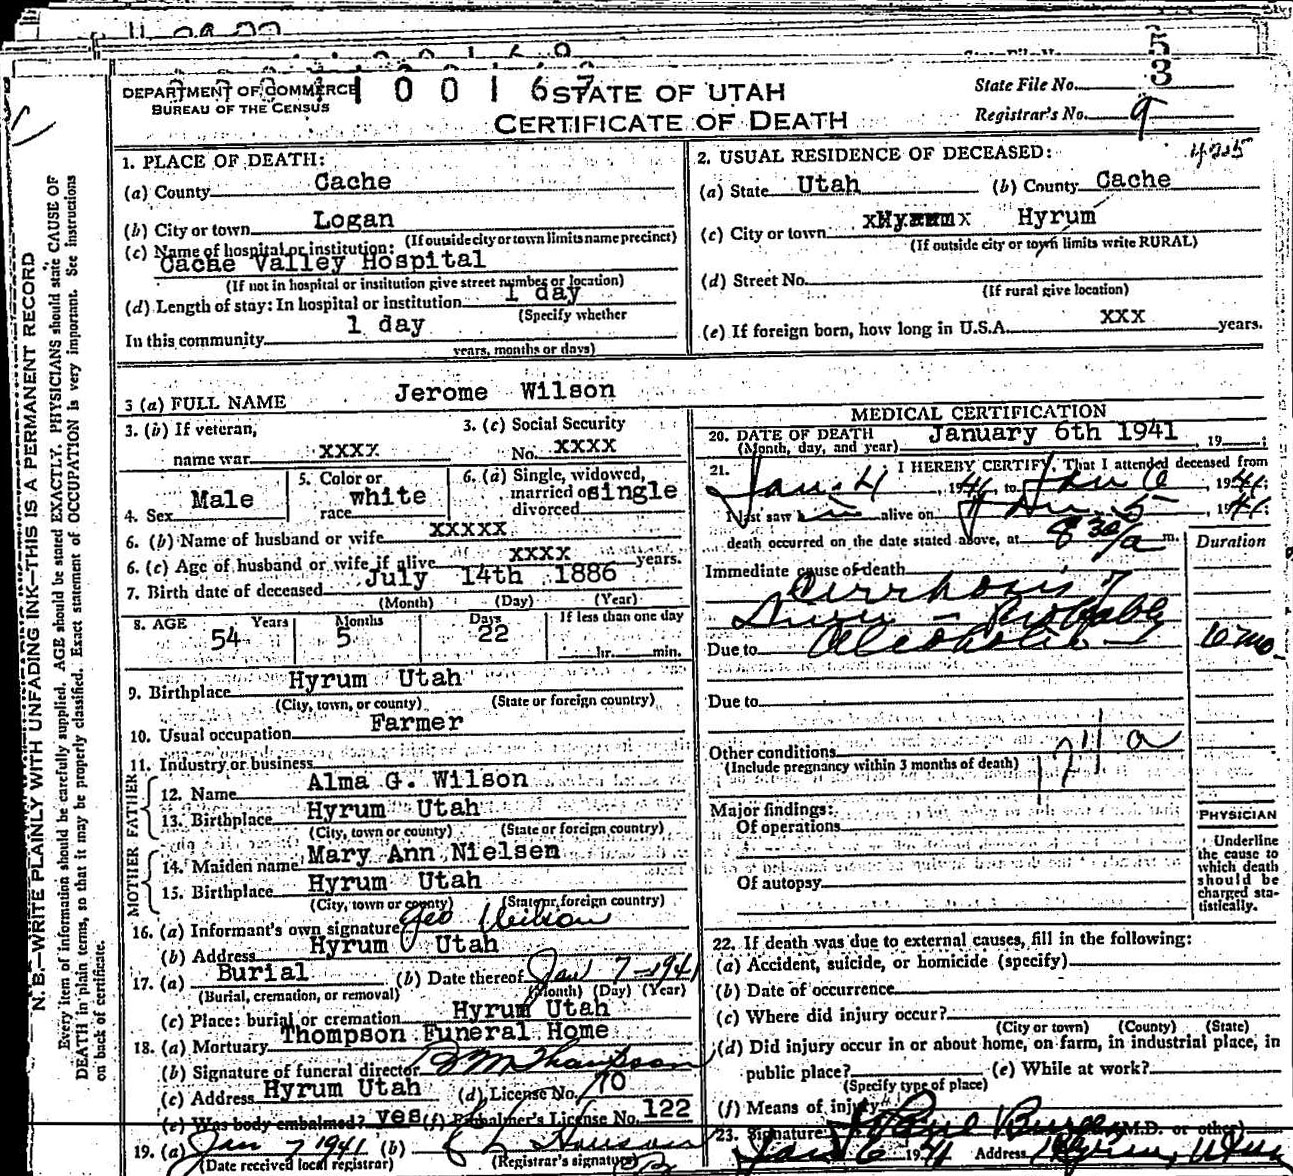 DEPARTMENT OF COMMERCE
BUREAU OF THE CENSUS
100167
STATE OF UTAH
CERTIFICATE OF DEATH
State File No. 53
Registrar's No. 9
N. B.—WRITE PLAINLY WITH UNFADING INK—THIS IS A PERMANENT RECORD
Every item of information should be carefully supplied. AGE should be stated EXACTLY. PHYSICIANS should state CAUSE OF
DEATH in plain terms, so that it may be properly classified. Exact statement of OCCUPATION is very important. See instructions
on back of certificate.
1. PLACE OF DEATH:
(a) County Cache
(b) City or town Logan
(If outside city or town limits name precinct)
(c) Name of hospital or institution:
Cache Valley Hospital
(If not in hospital or institution give street number or location)
(d) Length of stay: In hospital or institution 1 day
(Specify whether
In this community 1 day
years, months or days)
2. USUAL RESIDENCE OF DECEASED:
(a) State Utah (b) County Cache
(c) City or town xHyrumx Hyrum
(If outside city or town limits write RURAL)
(d) Street No.
(If rural give location)
(e) If foreign born, how long in U.S.A. xxx years.
3 (a) FULL NAME Jerome Wilson
3. (b) If veteran,
name war xxxx
3. (c) Social Security
No. xxxx
4. Sex Male
5. Color or
race white
6. (a) Single, widowed,
married or single
divorced
6. (b) Name of husband or wife xxxxx
6. (c) Age of husband or wife if alive xxxx years.
7. Birth date of deceased July 14th 1886
(Month) (Day) (Year)
8. AGE Years Months Days If less than one day
54 5 22
hr. min.
9. Birthplace Hyrum Utah
(City, town, or county) (State or foreign country)
10. Usual occupation Farmer
11. Industry or business
FATHER
12. Name Alma G. Wilson
13. Birthplace Hyrum Utah
(City, town or county) (State or foreign country)
MOTHER
14. Maiden name Mary Ann Nielsen
15. Birthplace Hyrum Utah
(City, town or county) (State or foreign country)
16. (a) Informant's own signature Geo Wilson
(b) Address Hyrum Utah
17. (a) Burial (b) Date thereof Jan 7-1941
(Burial, cremation, or removal) (Month) (Day) (Year)
(c) Place: burial or cremation Hyrum Utah
18. (a) Mortuary Thompson Funeral Home
(b) Signature of funeral director B M Thompson
(c) Address Hyrum Utah (d) License No. 70
(e) Was body embalmed? yes (f) Embalmer's License No. 122
19. (a) Jan 7 1941 (b)
(Date received local registrar) (Registrar's signature)
MEDICAL CERTIFICATION
20. DATE OF DEATH January 6th 1941, 19 ;
(Month, day, and year)
21. I HEREBY CERTIFY, That I attended deceased from
Jan. 4, 1941, to Jan 6, 1941;
I last saw him alive on Jan 5, 1941;
death occurred on the date stated above, at 8 30/a m.
Duration
Immediate cause of death
Cirrhosis of
Liver - Probably
Due to Alcoholic 6 mo.
Due to
Other conditions
(Include pregnancy within 3 months of death)
Major findings:
Of operations
Of autopsy
PHYSICIAN
Underline
the cause to
which death
should be
charged sta-
tistically.
22. If death was due to external causes, fill in the following:
(a) Accident, suicide, or homicide (specify)
(b) Date of occurrence
(c) Where did injury occur?
(City or town) (County) (State)
(d) Did injury occur in or about home, on farm, in industrial place, in
public place? (e) While at work?
(Specify type of place)
(f) Means of injury
23. Signature (M.D. or other)
Jan 6 1941 Address Hyrum, Utah